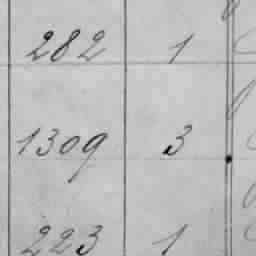 282 1
1309 3
223 1